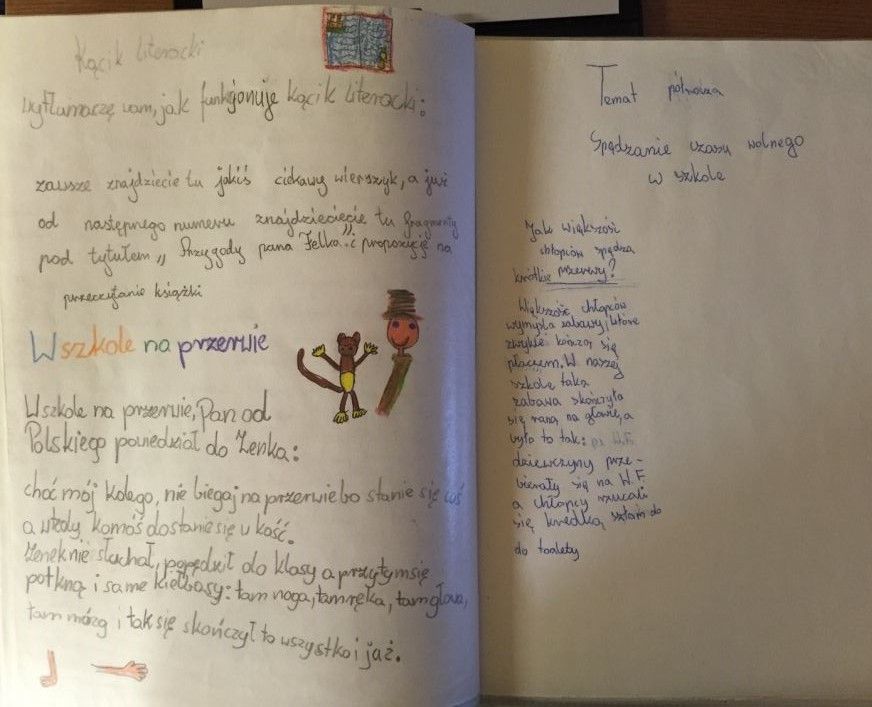 Kącik literacki
wytłumaczę wam, jak funkjonuje kącik literacki:
zawsze znajdziecie tu jakiś ciekawy wierszyk, a już
od następnego numeru znajdziecięcie tu fragmenty
pod tytułem „Przygody pana Felka" i propozycję na
przeczytanie książki
W szkole na przerwie
W szkole na przerwie, Pan od
Polskiego powiedział do Zenka:
choć mój kolego, nie biegaj na przerwie bo stanie się coś
a wtedy komóś dostanie się w kość.
Zenek nie słuchał, popędził do klasy a przytym się
potkną i same kiełbasy: tam noga, tam ręka, tam głowa,
tam mózg i tak się skończył to wszystko i jaź.
Temat półrocza
Spędzanie czasu wolnego
w szkole
Jak większość
chłopców spędza
krótkie przerwy?
Większość chłopców
wymyśla zabawy, które
zwykle kończą się
płaczem. W naszej
szkole taka
zabawa skończyła
się raną na głowie, a
było to tak: W.F.
dziewczyny prze-
bierały się na W.F.
a chłopcy rzucali
się kredką, szłam do
do toalety